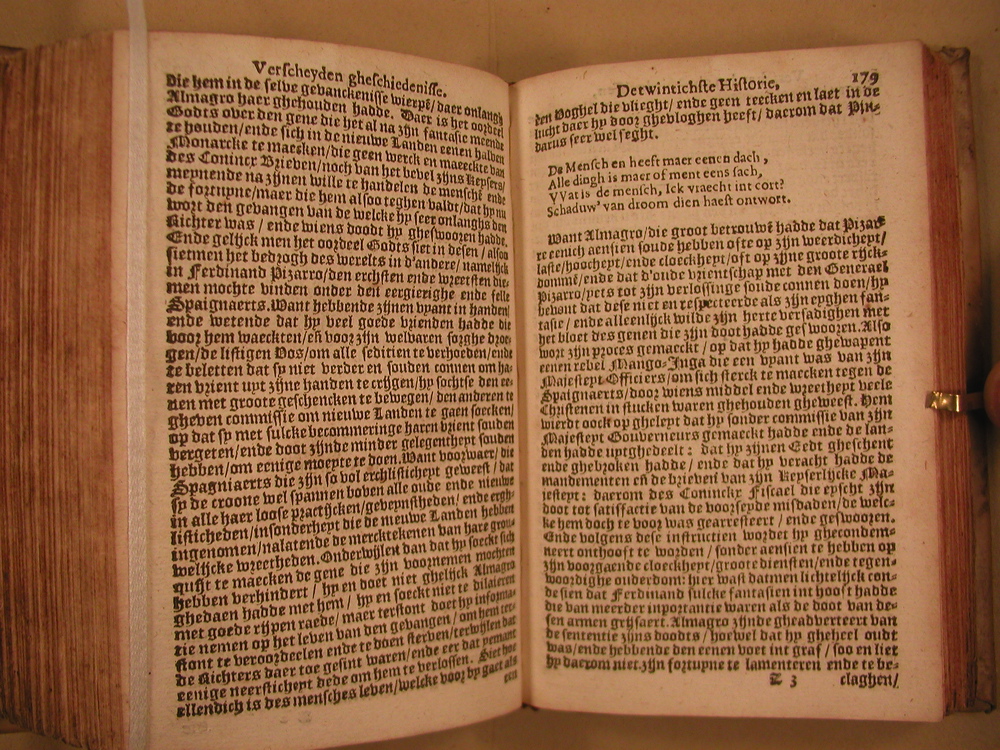 Verscheyden gheschiedenisse.
die hem in de selve gevanckenisse wierpē/daer onlangs
Almagro haer ghehouden hadde. Daer is het oordeel
Godts over den gene die het al na zijn fantasie meende
te houden/ende sich in de nieuwe Landen eenen halven
Monarcke te maecken/die geen werck en maeckte van
des Conincx Brieven/noch van het bevel zijns Keysers/
meynende na zijnen wille te handelen de menschē ende
de fortuyne/maer die hem alsoo teghen valdt/dat hy nu
wort den gevangen van de welcke hy seer onlanghs den
Richter was/ ende wiens doodt hy gheswooren hadde.
Ende gelijck men het oordeel Godts siet in desen / alsoo
sietmen het bedrogh des werelts in d'andere/ namelijck
in Ferdinand Pizarro/den erchsten ende wreetsten die-
men mochte vinden onder den eergierighe ende felle
Spaignaerts. Want hebbende zijnen vyant in handen/
ende wetende dat hy veel goede vrienden hadde die
voor hem waeckten/eñ voor zijn welvaren sorghe droe-
gen/de listigen Vos/om alle seditien te verhoeden/ende
te beletten dat sy niet verder en souden connen om ha-
ren vrient uyt zijne handen te crijgen/hy sochtse den ee-
nen met groote geschencken te bewegen/ den anderen te
gheven commissie om nieuwe Landen te gaen soecken/
op dat sy met sulcke becommeringe haren vrient souden
vergeten/ende doot zijnde minder gelegentheyt souden
hebben/om eenige moeyte te doen. Want voorwaer/ die
Spagniaerts die zijn so vol erchlisticheyt geweest / dat
sy de croone wel spannen boven alle oude ende nieuwe
in alle haer loose practijcken/geveynstheden/ ende ergh-
listicheden/insonderheyt die de nieuwe Landen hebben
ingenomen/nalatende de mercktekenen van hare grou-
welijcke wreetheden. Onderwijlen dan dat hy soeckt sich
quijt te maecken de gene die zijn voornemen mochten
hebben verhindert / hy en doet niet ghelijck Almagro
ghedaen hadde met hem / hy en soeckt niet te dilaieren
met goede rijpen raede/ maer terstont doet hy informa-
tie nemen op het leven van den gevangen/ om hem ter-
stont te veroordeelen ende te doen sterven/terwijlen dat
de Richters daer toe gesint waren/ende eer dat yemant
eenige neersticheyt dede om hem te verlossen. Siet hoe
ellendich is des menschen leven/welcke voor by gaet als
een
Det wintichste Historie, 179
den Voghel die vlieght/ ende geen teecken en laet in de
lucht daer hy door ghevloghen heeft/ daerom dat Pin-
darus seer wel seght.
De Mensch en heeft maer eenen dach,
Alle dingh is maer of ment eens sach,
VVat is de mensch, Ick vraecht int cort?
Schaduw' van droom dien haest ontwort.
Want Almagro/die groot betrouwē hadde dat Pizar-
re eenich aensien soude hebben ofte op zijn weerdicheyt/
laste/hoocheyt/ende cloeckheyt/oft op zijne groote rijck-
dommē/ende dat d'oude vrientschap met den Generael
Pizarro/yets tot zijn verlossinge soude connen doen/hy
bevont dat dese niet en respecteerde als zijn eyghen fan-
tasie/ ende alleenlijck wilde zijn herte versadighen met
het bloet des genen die zijn doot hadde geswooren. Also
wort zijn proces gemaeckt / op dat hy hadde ghewapent
eenen rebel Mango-Inga die een vyant was van zijn
Majesteyt Officiers/om sich sterck te maecken tegen de
Spaignaerts/door wiens middel ende wreetheyt veele
Christenen in stucken waren ghehouden gheweest. Hem
wierdt oock op gheleyt dat hy sonder commissie van zijn
Majesteyt Gouverneurs gemaeckt hadde ende de lan-
den hadde uytghedeelt: dat hy zijnen Eedt gheschent
ende ghebroken hadde/ ende dat hy veracht hadde de
mandementen eñ de brieven van zijn Keyserlijcke Ma-
jesteyt: daerom des Conincks Fiscael die eyscht zijn
doot tot satisfactie van de voorseyde misdaden/de welc-
ke hem doch te voor was gearresteert / ende geswooren.
Ende volgens dese instructien wordet hy ghecondem-
neert onthooft te worden/ sonder aensien te hebben op
zijn voorgaende cloeckheyt/groote diensten/ende tegen-
woordighe ouderdom: hier wast datmen lichtelijck con-
de sien dat Ferdinand sulcke fantasien int hooft hadde
die van meerder inportantie waren als de doot van de-
sen armen grijsaert. Almagro zijnde gheadverteert van
de sententie zijns doodts/ hoewel dat hy gheheel oudt
was/ende hebbende den eenen voet int graf / soo en liet
hy daerom niet zijn fortuyne te lamenteren ende te be-
Z 3 claghen/